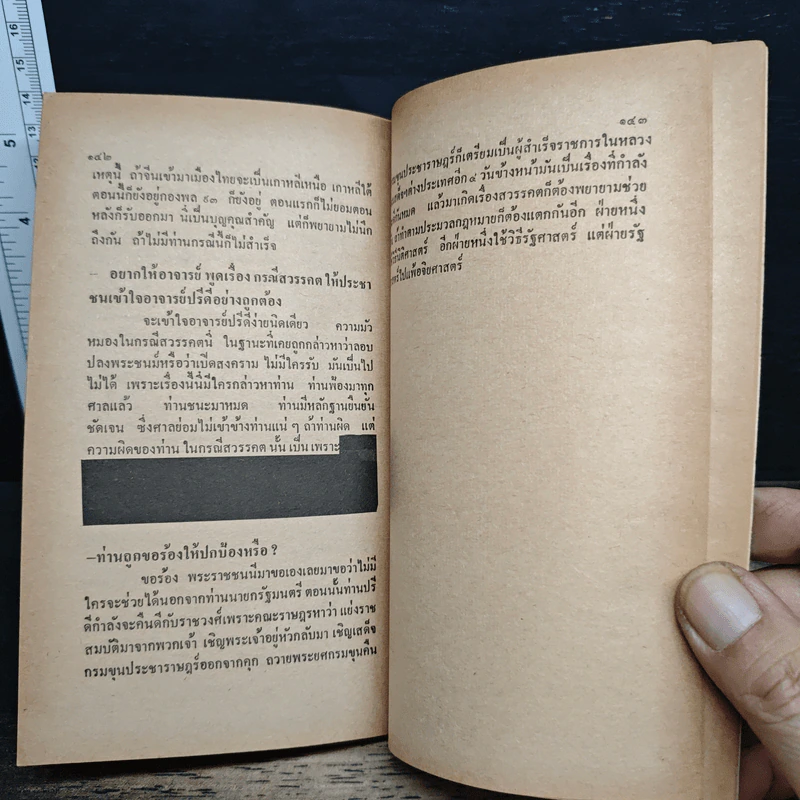 ๑๔๒
เหตุนี้ ถ้าจีนเข้ามาเมืองไทยจะเป็นเกาหลีเหนือ เกาหลีใต้
ตอนนี้ก็ยังอยู่กองพล ๙๓ ก็ยังอยู่ ตอนแรกก็ไม่ยอมตอน
หลังก็รับออกมา นี่เป็นบุญคุณสำคัญ แต่ก็พยายามไม่นึก
ถึงกัน ถ้าไม่มีท่านกรณีนี้ก็ไม่สำเร็จ
– อยากให้อาจารย์ พูดเรื่อง กรณีสวรรคต ให้ประชา
ชนเข้าใจอาจารย์ปรีดีอย่างถูกต้อง
จะเข้าใจอาจารย์ปรีดีง่ายนิดเดียว ความมัว
หมองในกรณีสวรรคตนี้ ในฐานะที่เคยถูกกล่าวหาว่าลอบ
ปลงพระชนม์หรือว่าเปิดสงคราม ไม่มีใครรับ มันเป็นไป
ไม่ได้ เพราะเรื่องนี้นี่มีใครกล่าวหาท่าน ท่านฟ้องมาทุก
ศาลแล้ว ท่านชนะมาหมด ท่านมีหลักฐานยืนยัน
ชัดเจน ซึ่งศาลย่อมไม่เข้าข้างท่านแน่ ๆ ถ้าท่านผิด แต่
ความผิดของท่าน ในกรณีสวรรคต นั้น เป็น เพราะ
–ท่านถูกขอร้องให้ปกป้องหรือ ?
ขอร้อง พระราชชนนีมาขอเองเลยมาขอว่าไม่มี
ใครจะช่วยได้นอกจากท่านนายกรัฐมนตรี ตอนนั้นท่านปรี
ดีกำลังจะคืนดีกับราชวงศ์เพราะคณะราษฎรหาว่า แย่งราช
สมบัติมาจากพวกเจ้า เชิญพระเจ้าอยู่หัวกลับมา เชิญเสด็จ
กรมขุนประชาราษฎร์ออกจากคุก ถวายพระยศกรมขุนคืน
๑๔๓
ขุนประชาราษฎร์ก็เตรียมเป็นผู้สำเร็จราชการในหลวง
ต่างประเทศอีก ๔ วันข้างหน้ามันเป็นเรื่องที่กำลัง
หมด แล้วมาเกิดเรื่องสวรรคตก็ต้องพยายามช่วย
ถ้าทำตามประมวลกฎหมายก็ต้องแตกกันอีก ฝ่ายหนึ่ง
นิติศาสตร์ อีกฝ่ายหนึ่งใช้วิธีรัฐศาสตร์ แต่ฝ่ายรัฐ
ไปแพ้อจิยศาสตร์